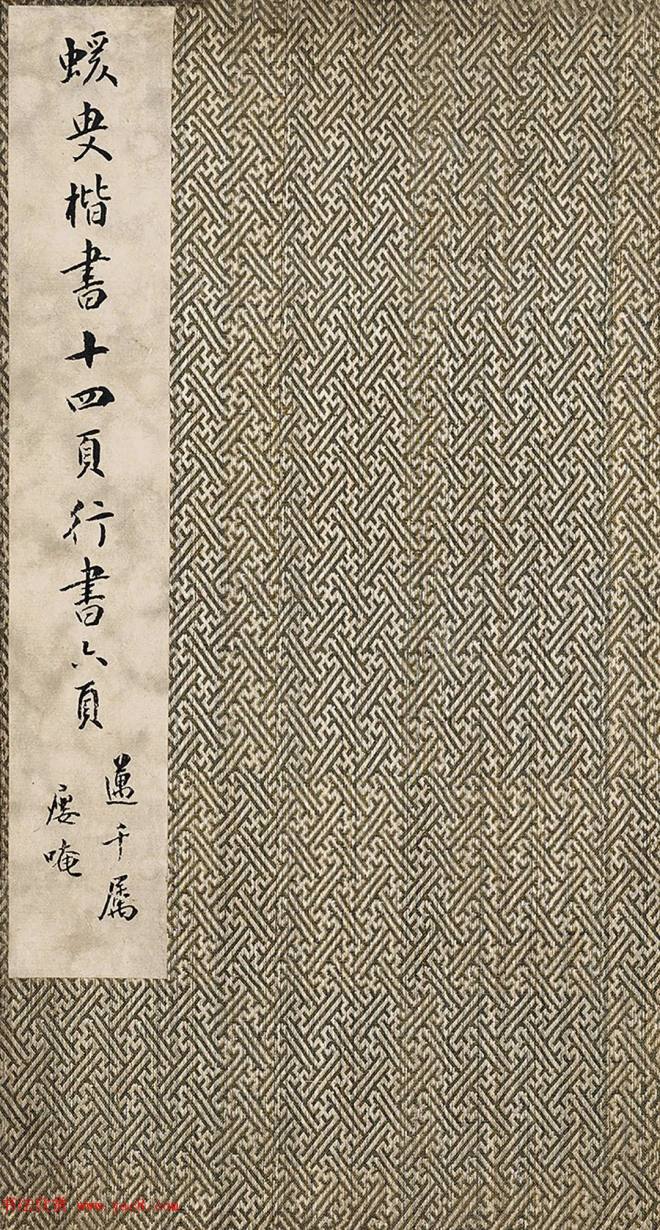 蝯叟楷書十四頁行書六頁
千属
唵
书法欣赏 www.yac8.com